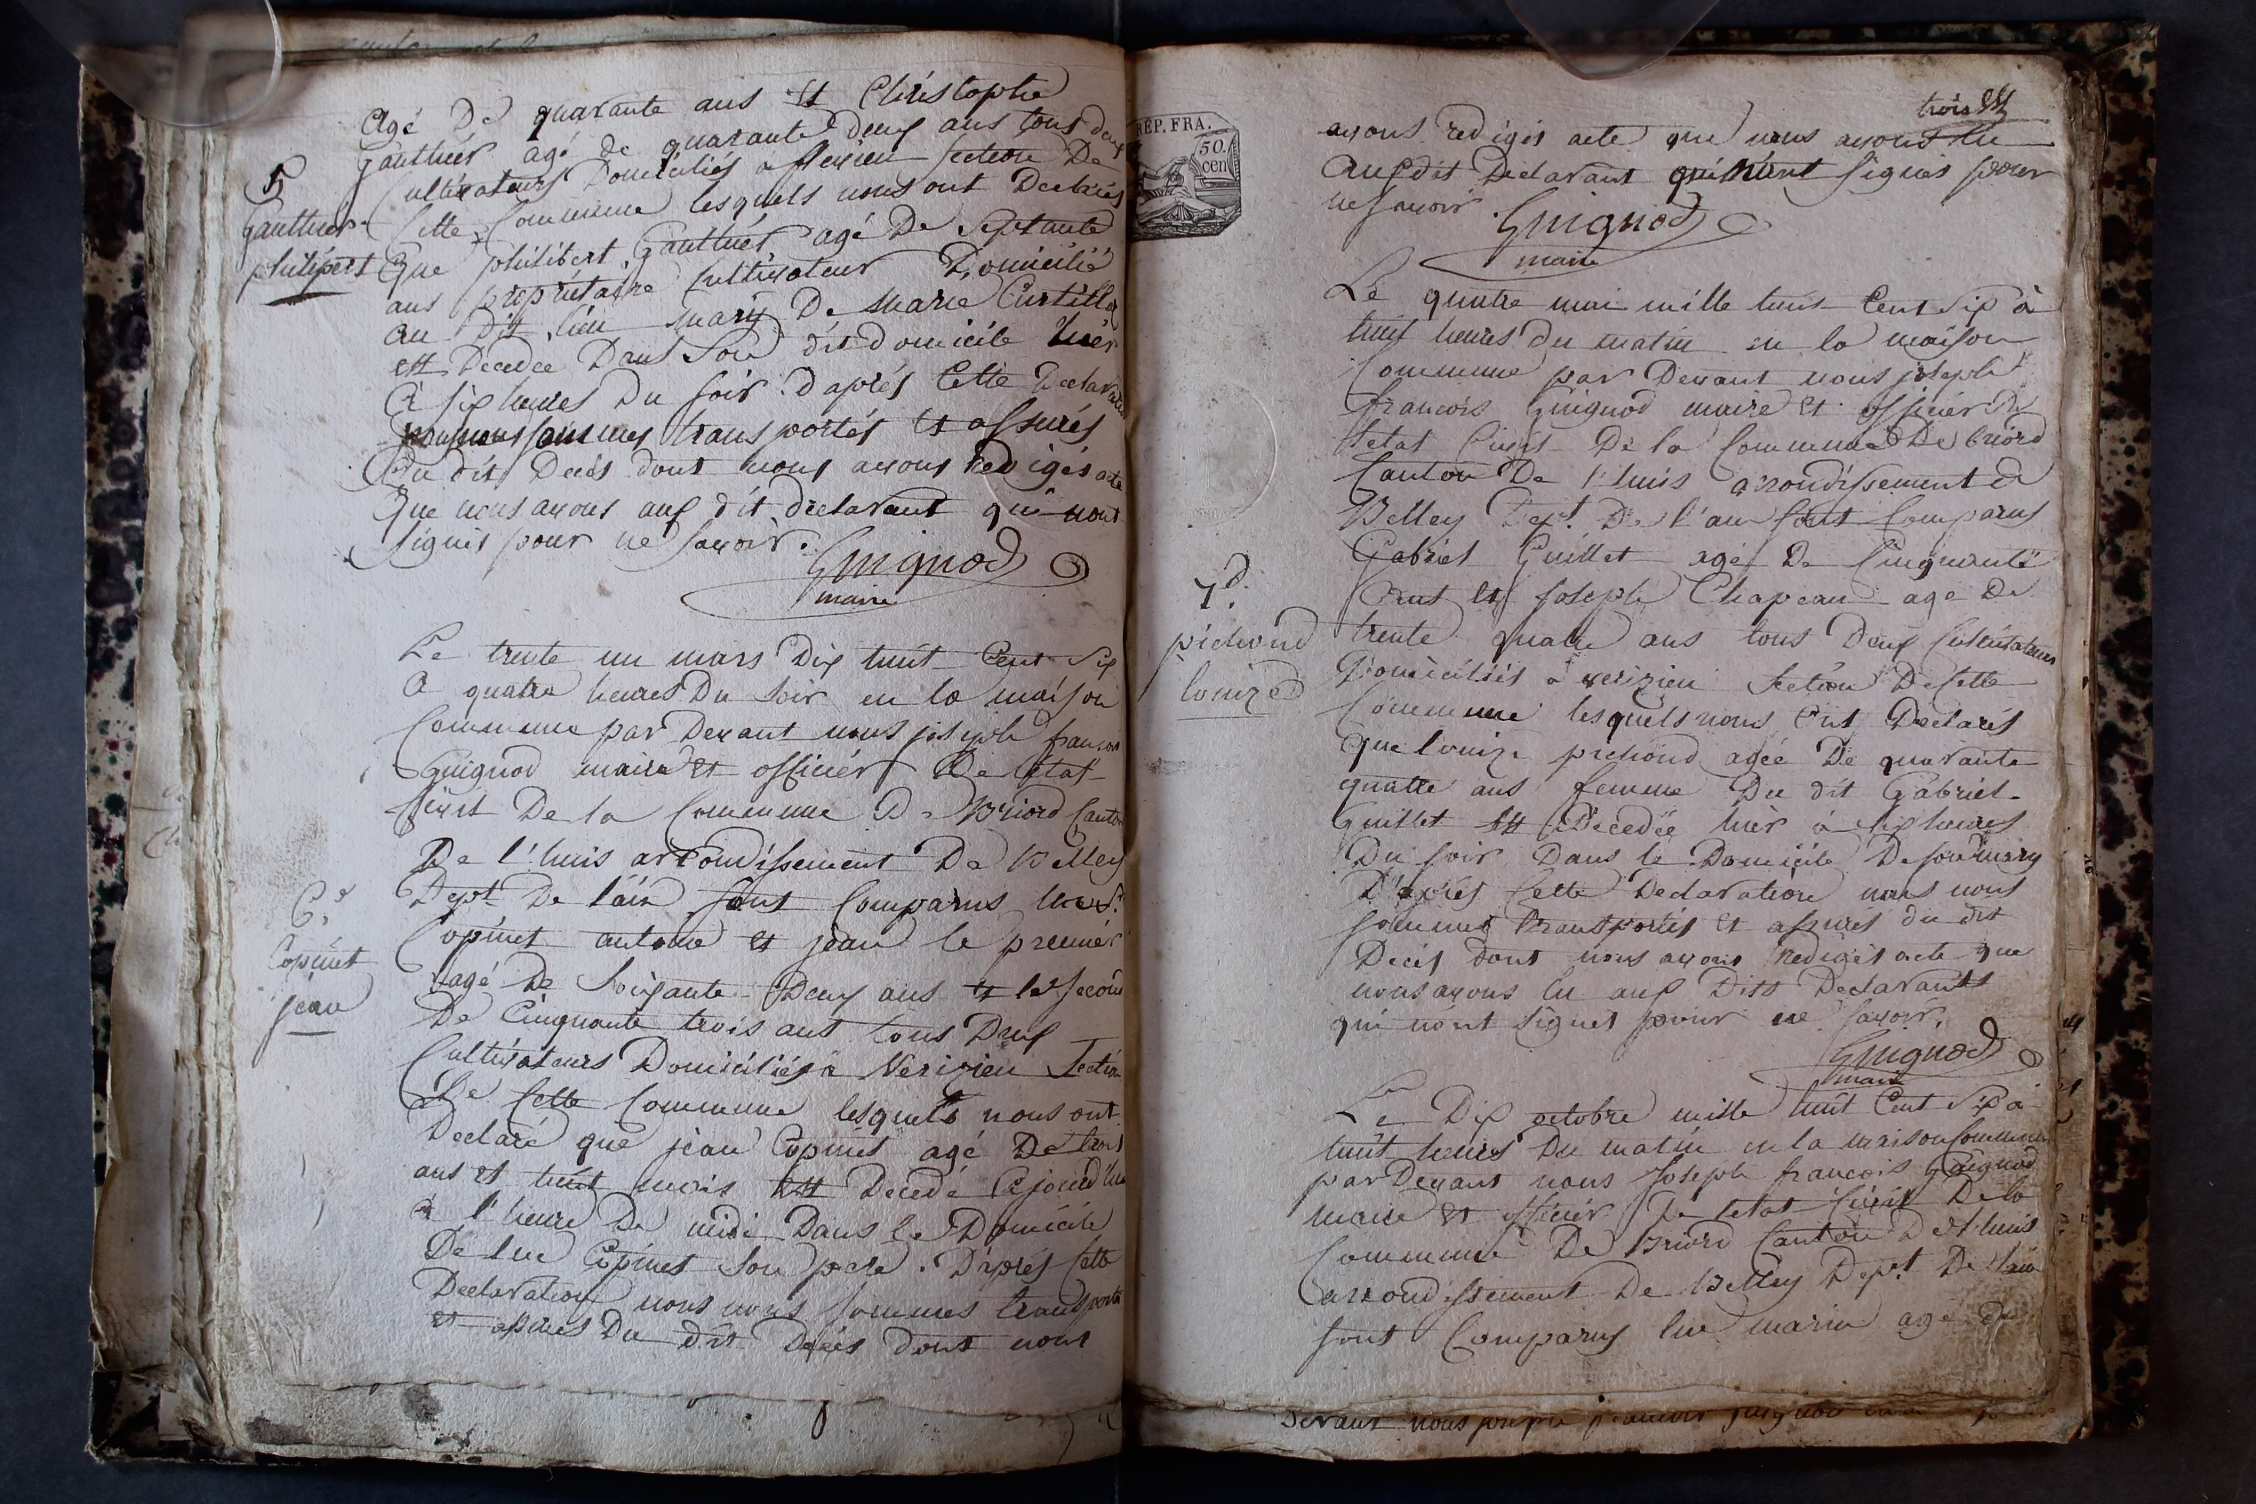 Agé De quarante ans Et Christophe
Gauthier agé de quarante deux ans tous deux
Cultivateurs Domiciliés a flexieu Section De
5
Gauthier
philipert
Cette Commune lesquels nous ont Declarés
Que philibert Gauthier agé De Septante
ans propriétaire Cultivateur Domicilié
au dit lieu mary De marie Curtillet
est Décedée Dans Son dit domicile hiér
à six heures Du soir. d'après Cette Declaration
nous nous sommes transportés et assurés
Du dit Decés dont nous avons redigés acte
Que nous avons aux dit declarant qui nont
signés pour ne savoir.
Guignod
maire
Le trente un mars Dix huit Cent Six
a quatre heures Du soir en la maison
Commune par Devant nous joseph francois
Guignod maire et officiér De letat
Civil De la Commune De Briord Canton
De l'huis arrondissement De Belley
6e
Copinet
jean
Dept De l'ain Sont Comparus
Copinet antoine et jean le premiér
agé De Soixante Deux ans et le second
De Cinquante trois ans tous Deux
Cultivateurs Domiciliés à Verizieu Section
De Cette Commune lesquels nous ont
Declaré que jean Copinet agé De trois
ans et huit mois Est Decedé Cejourd'hui
à l'heure De midi Dans le Domicile
De luc Copinet Son pere. D'après Cette
Declaration nous nous sommes transportés
et assurés Du dit Decés dont nous
RÉP. FRA.
50.
cen
trois
avons redigés acte que nous avons lu
aux dit Declarant qui n'ont signés pour
ne savoir.
Guignod
maire
Le quatre mai mille huit Cent Six à
huit heures du matin en la maison
Commune par Devant nous joseph
francois Guignod maire et officiér De
letat Civil De la Commune De briord
Canton De l'huis arrondissement de
Belley Dept. De l'ain sont Comparus
Gabriel Guillet agé De Cinquante
7e.
pichond
louize
ans et joseph Chapeau agé De
trente quatre ans tous Deux Cultivateurs
Domiciliés à verizieu Section De Cette
Commune lesquels nous Ont Declarés
Que louize pichond agée De quarante
quatre ans femme Du dit Gabriel
Guillet Est Décedée hiér à six heures
Du soir Dans le Domicile De son mary
D'après Cette Declaration nous nous
sommes transportés et assurés du dit
Decés dont nous avons redigés acte que
nous avons lu aux Dits Declarants
qui n'ont signés pour ne savoir.
Guignod
maire
Le Dix octobre mille huit Cent Six à
huit heures Du matin en la maison Commune
par Devant nous Joseph francois Guignod
maire et officiér De letat Civil De la
Commune De Briord Canton De l'huis
arrondissement De Belley Dept. De l'ain
sont Comparus luc marin agé de
Devant nous joseph francois guignod